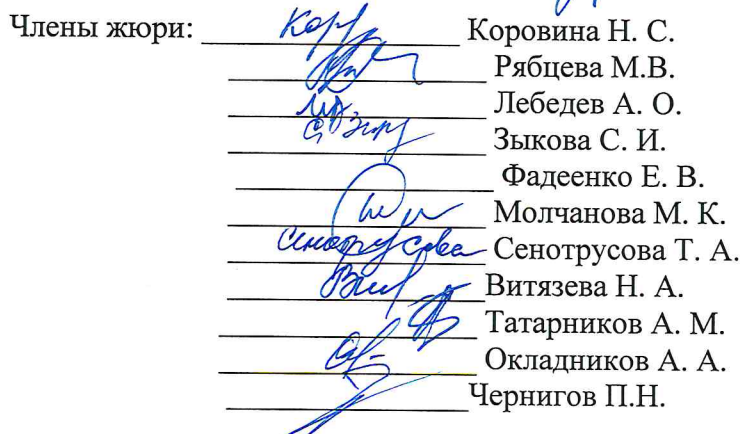 Члены жюри: Кор Коровина Н. С.
Рябцева М.В.
Лебедев А. О.
Зыкова С. И.
Фадеенко Е. В.
Молчанова М. К.
Сенотрусова Сенотрусова Т. А.
Витязева Н. А.
Татарников А. М.
Окладников А. А.
Чернигов П.Н.